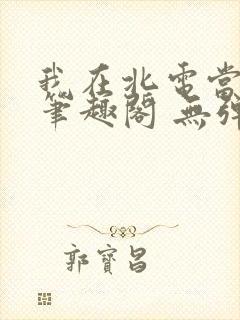 我在北電當
筆趣閣 無彈
郭寶昌